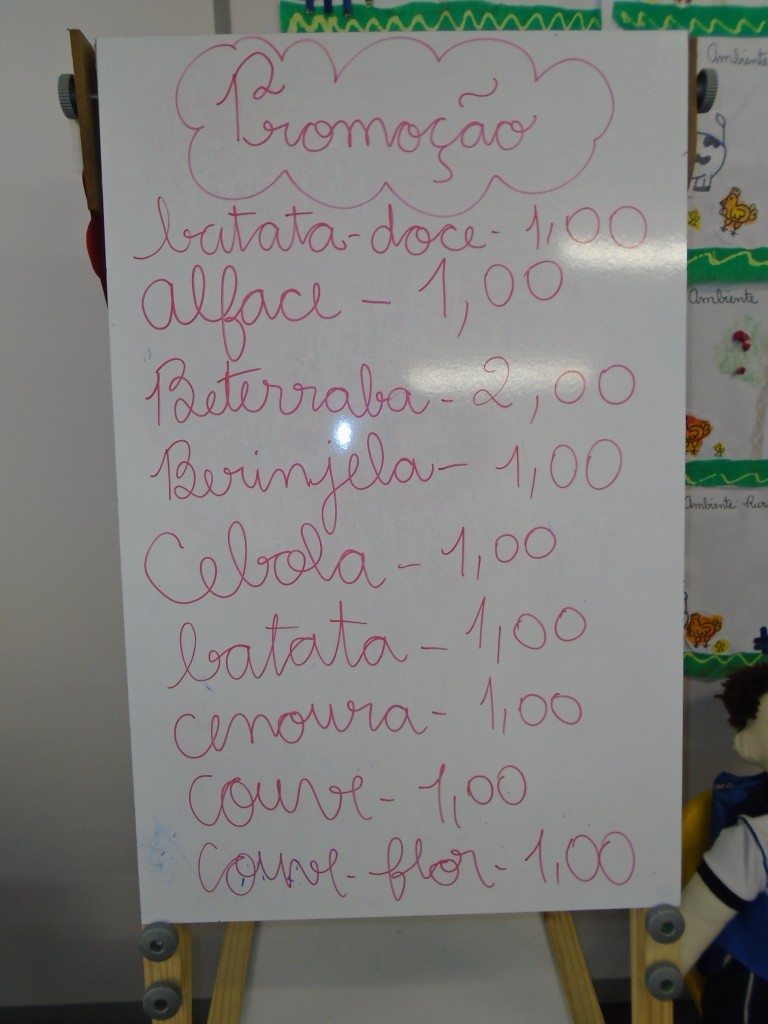 Promoção
batata-doce - 1,00
alface - 1,00
Beterraba - 2,00
Berinjela - 1,00
Cebola - 1,00
batata - 1,00
cenoura - 1,00
couve - 1,00
couve-flor - 1,00
Ambiente
Ambiente
Ambiente Rur